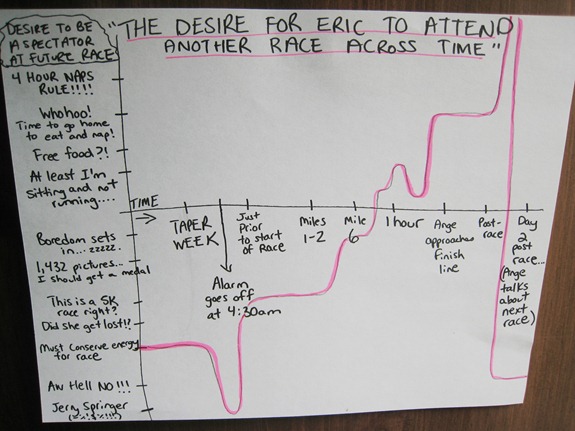 DESIRE TO BE
A SPECTATOR
AT FUTURE RACE
"THE DESIRE FOR ERIC TO ATTEND
ANOTHER RACE ACROSS TIME"
4 HOUR NAPS
RULE!!!!
Whohoo!
Time to go home
to eat and nap!
Free food?!
At least I'm
sitting and not
running....
Boredom sets
in... zzzzz.
1,432 pictures...
I should get a medal
This is a 5K
race right?
Did she get lost!?
Must conserve energy
for race
Aw Hell NO!!!
Jerry Springer
TIME
TAPER
WEEK
Alarm
goes off
at 4:30am
Just
Prior
to start
of Race
Miles
1-2
Mile
6
1 hour
Ange
approaches
finish
line
Post-
race
Day
2
post
race...
(Ange
talks
about
next
race)